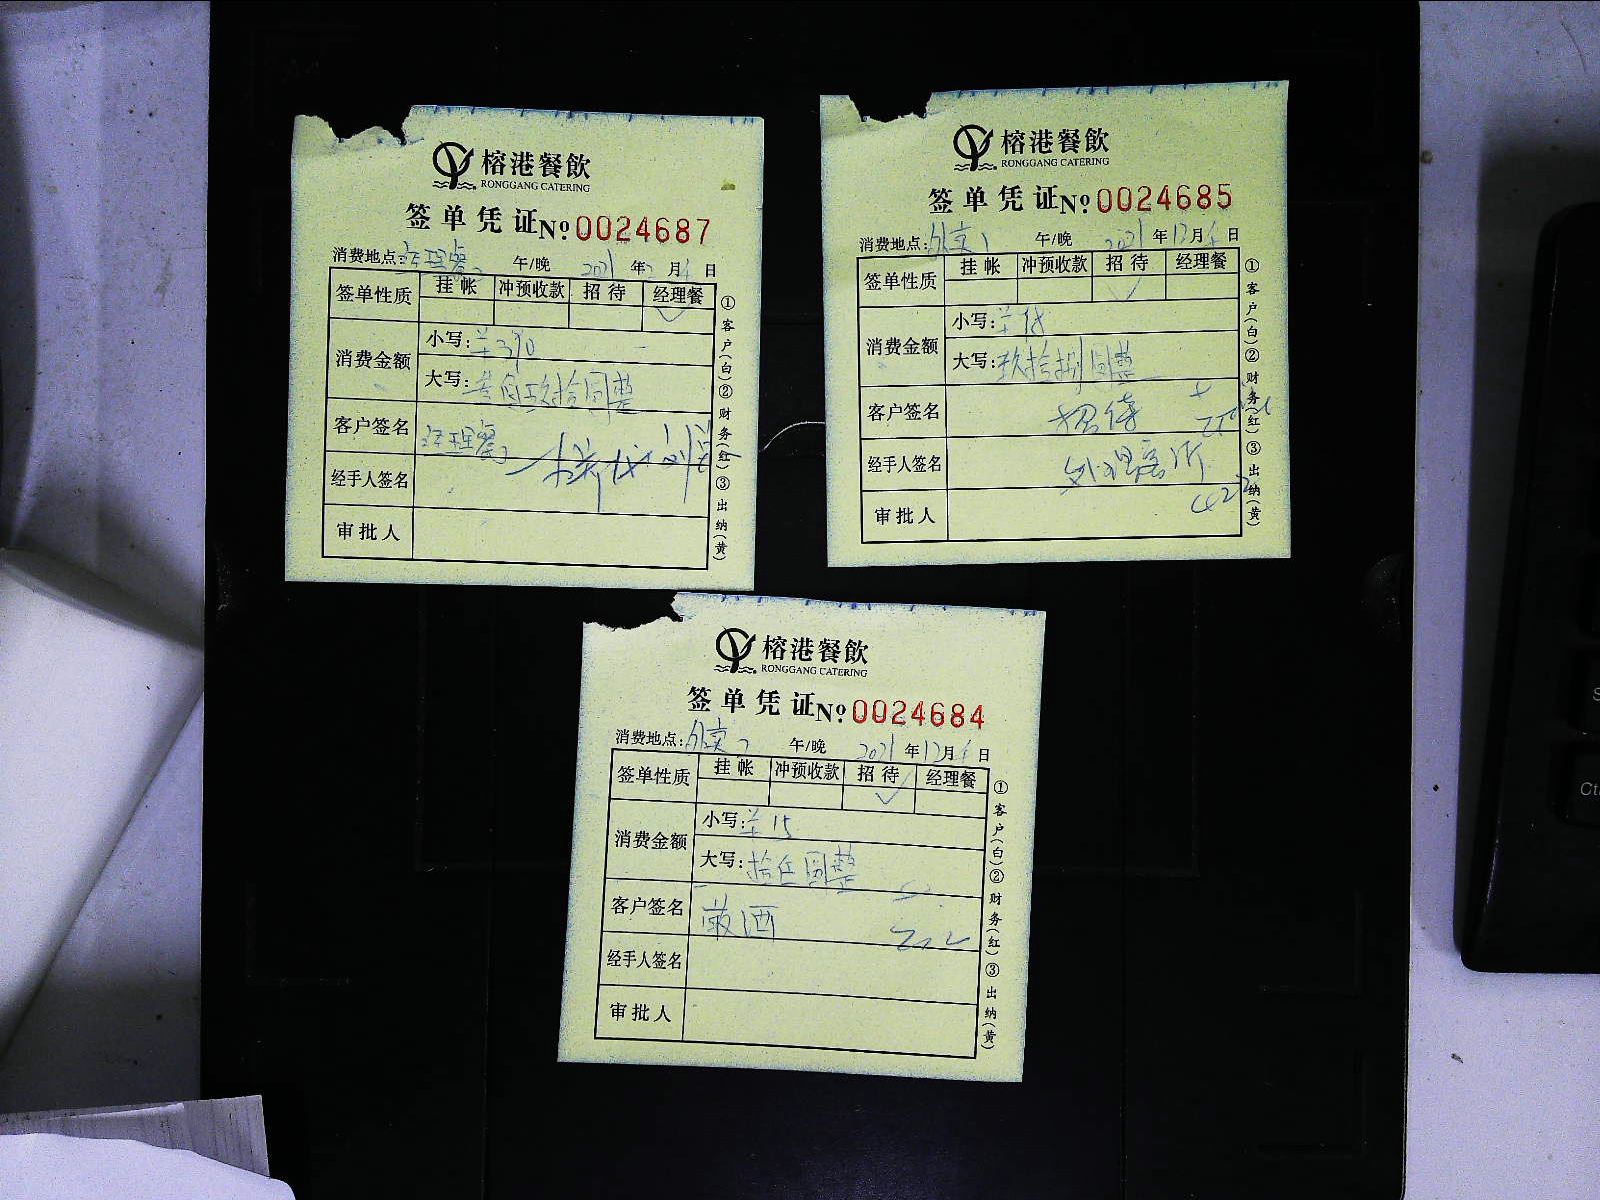 榕港餐飲
RONGGANG CATERING
签单凭证 № 0024687
消费地点: 经理餐 午/晚 2021年 月 日
签单性质 挂帐 冲预收款 招待 经理餐
✓
消费金额 小写:
大写: 玖拾圆整
客户签名 经理餐
经手人签名
审批人
①客户(白)②财务(红)③出纳(黄)
榕港餐飲
RONGGANG CATERING
签单凭证 № 0024685
消费地点: 外卖1 午/晚 2021年12月 日
签单性质 挂帐 冲预收款 招待 经理餐
✓
消费金额 小写:
大写: 玖拾捌圆整
客户签名 招待
经手人签名
审批人
①客户(白)②财务(红)③出纳(黄)
榕港餐飲
RONGGANG CATERING
签单凭证 № 0024684
消费地点: 外卖 午/晚 2021年12月 日
签单性质 挂帐 冲预收款 招待 经理餐
✓
消费金额 小写: 15
大写: 拾伍圆整
客户签名
经手人签名
审批人
①客户(白)②财务(红)③出纳(黄)